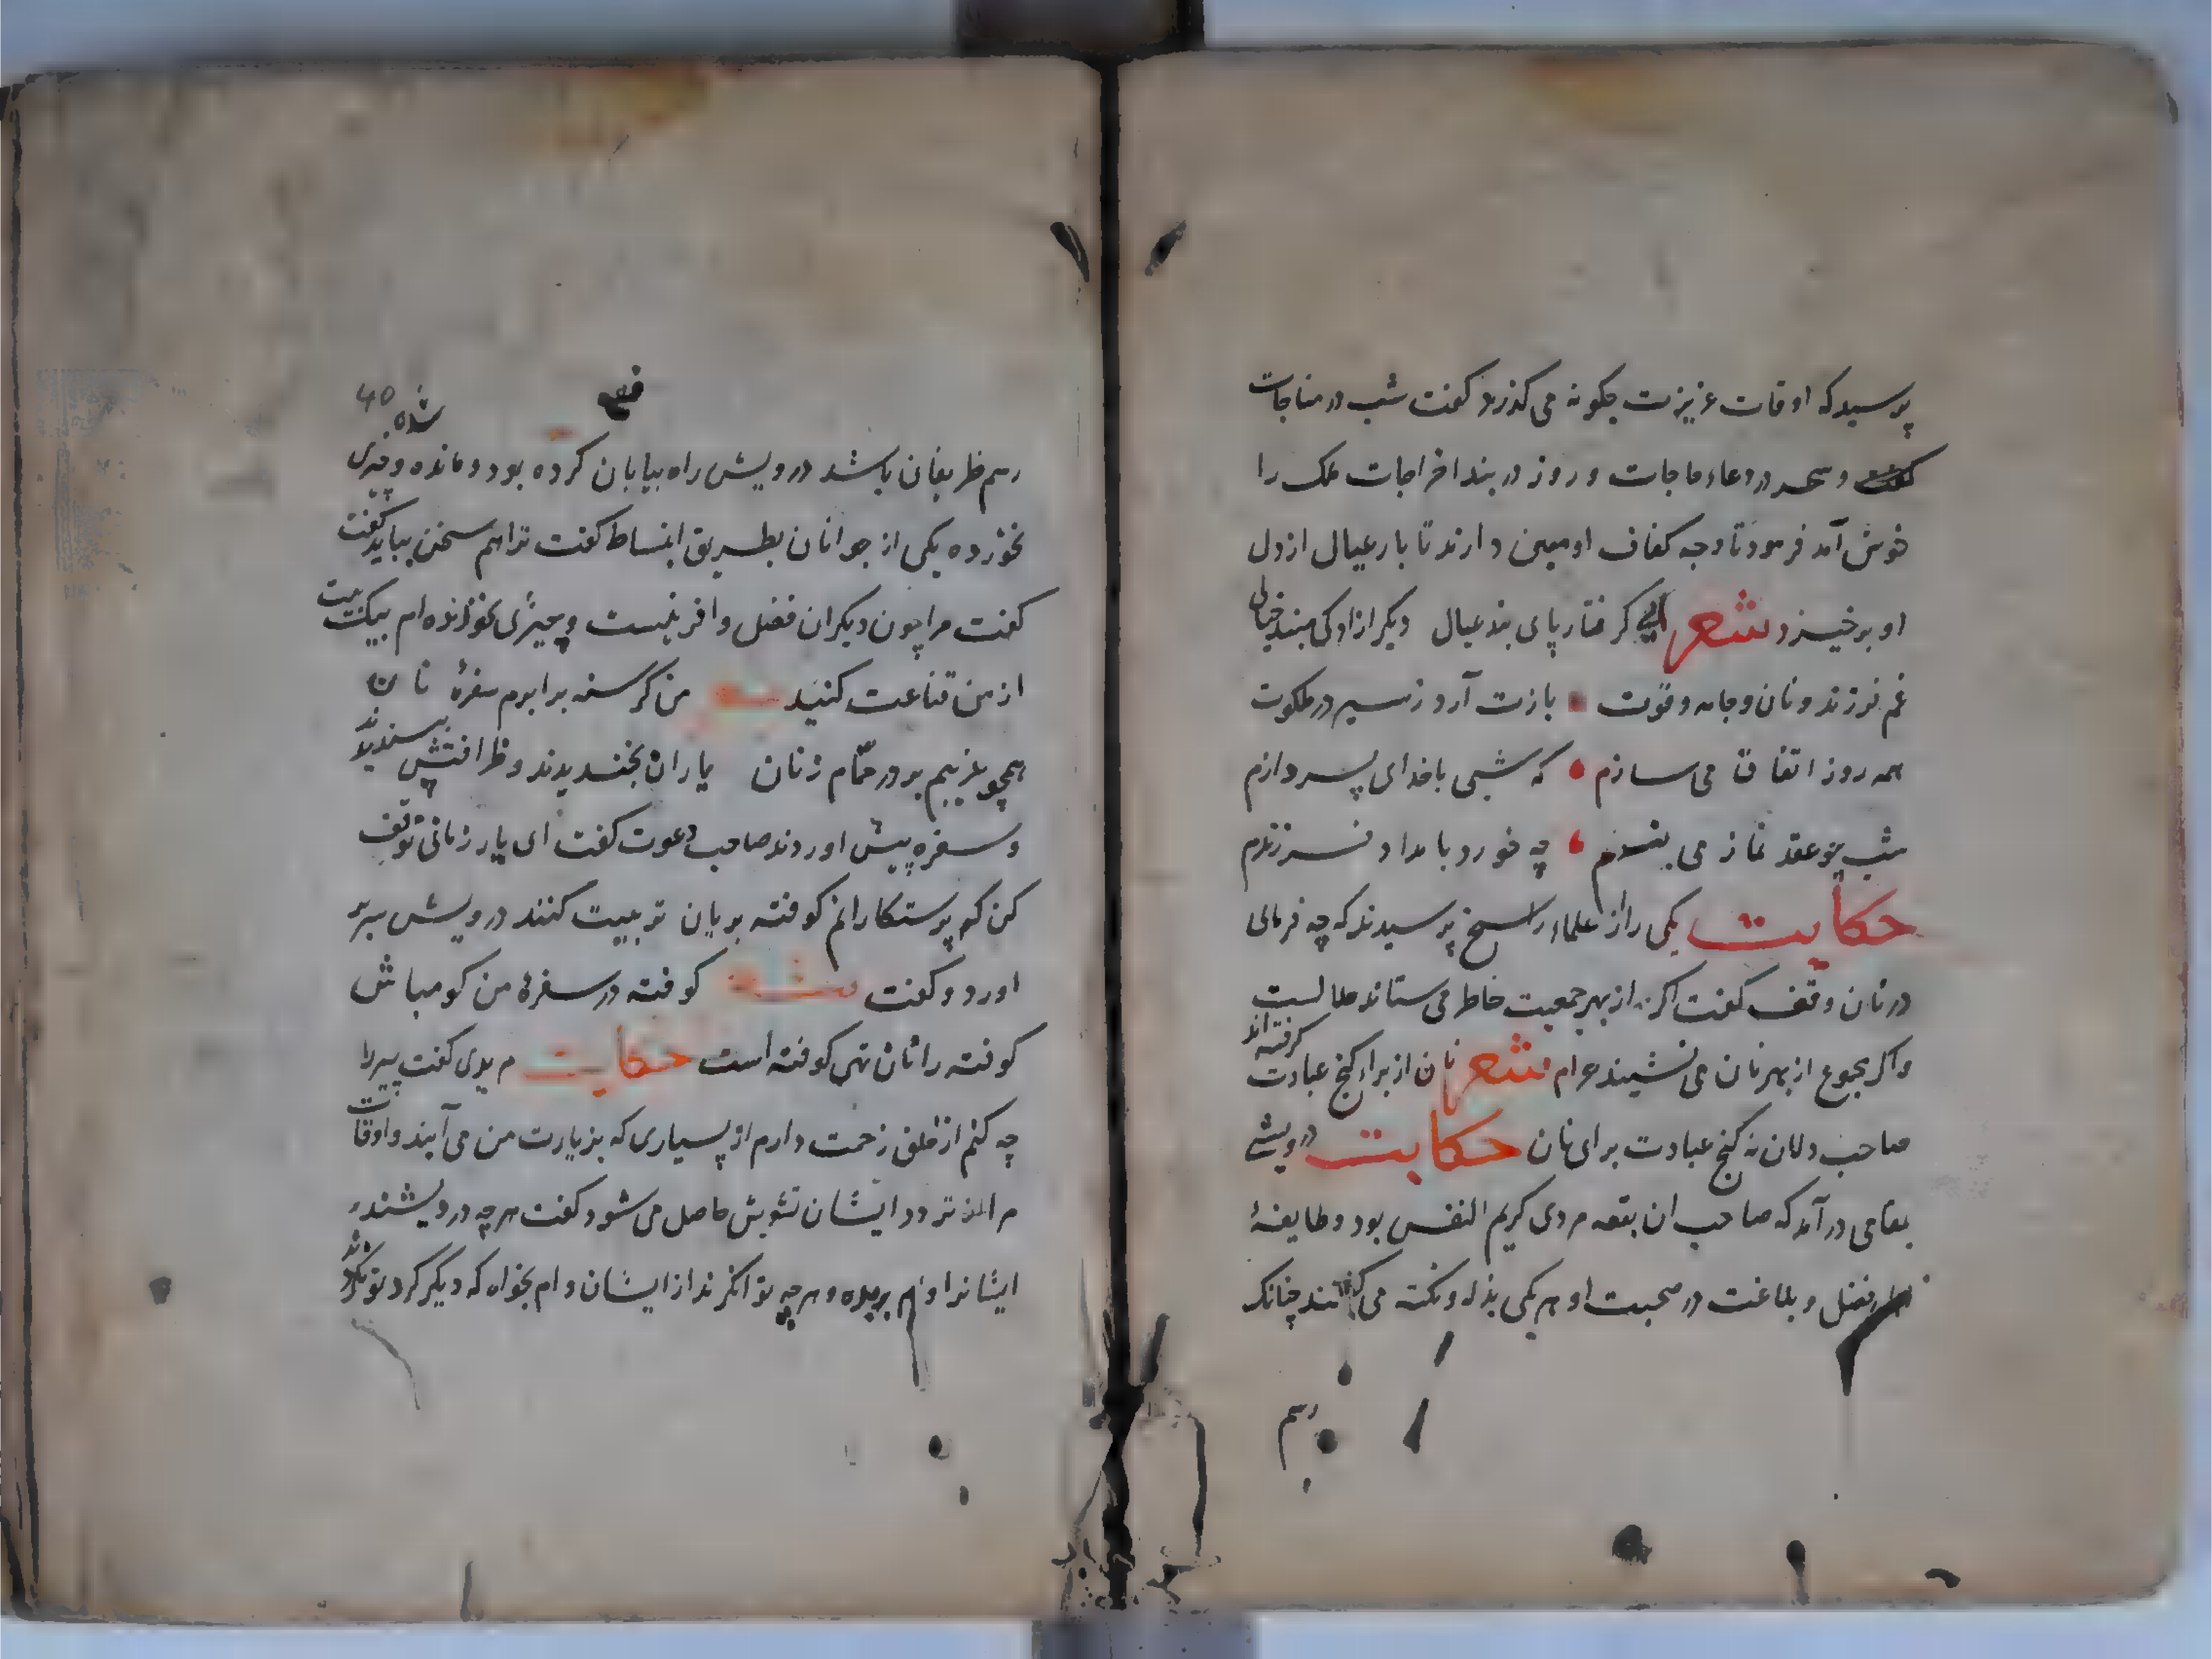 پرسید که اوقات عزیزت چکونه می کذرد کفت شب در مناجات
و سحر در دعاء حاجات و روز در بند اخراجات ملک را
خوش آمد فرمود تا وجه کفاف او معین دارند تا بار عیال از دل
او برخیزد شعر ای کرفتار پای بند عیال دیکر ازادکی مبند خیال
غم فرزند و نان و جامه و قوت بازت آرد ز سیر در ملکوت
همه روز اتفاق می سازم که شبی با خدای پردازم
شب چو عقد نماز می بندم چه خورد بامداد فرزندم
حکایت یکی را از علماء راسخ پرسیدند که چه فرمائی
در نان وقف کفت اکر از بهر جمعیت خاطر می ستاند حلالست
واکر مجموع از بهر نان می نشیند حرام شعر نان از براء کنج عبادت کرفته اند
صاحب دلان نه کنج عبادت برای نان حکایت درویشی
بمقامی در آمد که صاحب ان بقعه مردی کریم النفس بود و طایفهٔ
فضل و بلاغت در صحبت او هر یکی بذله و نکته می کفتند چنانک
رسم
40
رسم ظریفان باشد درویش راه بیابان کرده بود و مانده شده و چیزی
نخورده یکی از جوانان بطریق انبساط کفت ترا هم سخن بباید کفت
کفت مرا چون دیکران فضل وافر نیست و چیزی نخوانده ام بیک بیت
از من قناعت کنید من کرسنه برابرم سفرهٔ نان
همچو عزبیم بر در حمّام زنان یاران بخندیدند و ظرافتش پسندیدند
و سفره پیش اوردند صاحب دعوت کفت ای یار زمانی توقف
کن که پرستکارانم کوفته بریان تربیت کنند درویش سر بر
اورد و کفت کوفته در سفرهٔ من کو مباش
کوفته را نان تهی کوفته است حکایت مریدی کفت پیر را
چه کنم از خلق زحمت دارم از بسیاری که بزیارت من می آیند و اوقات
مرا از تردد ایشان تشویش حاصل می شود کفت هر چه درویشند
ایشانرا وام بده و هر چه توانکرند از ایشان وام بخواه که دیکر کرد تو نکردند